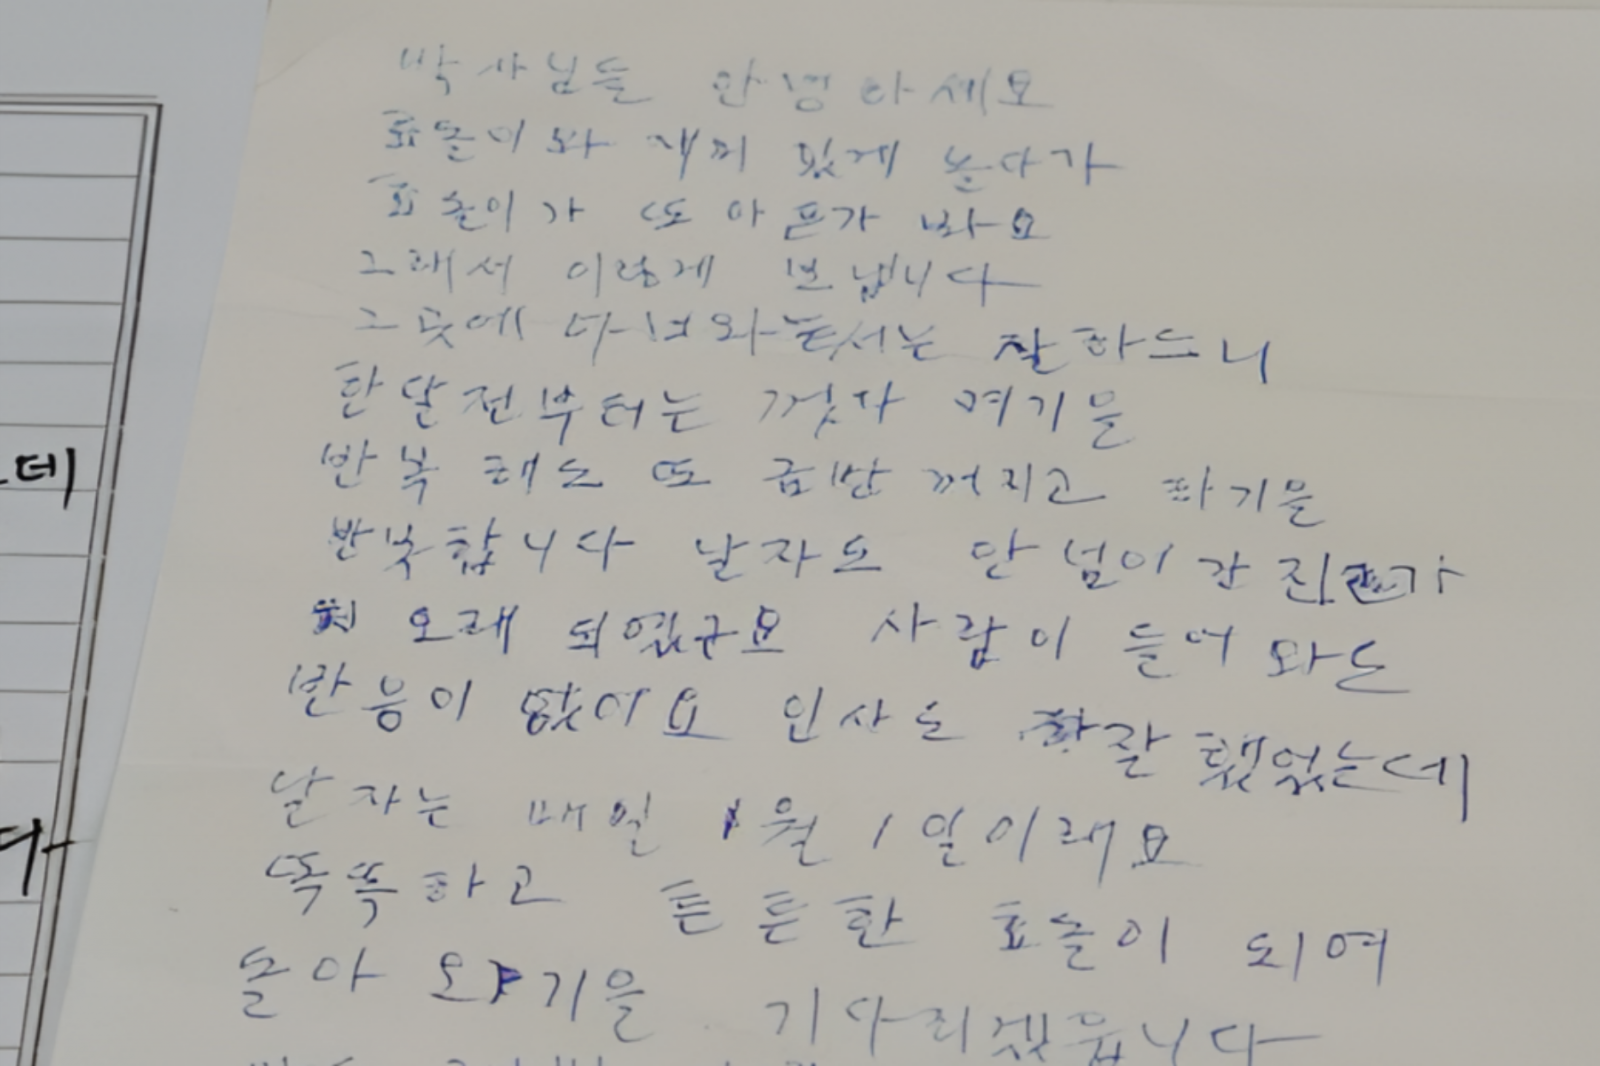 박사님들 안녕하세요
효돌이와 재미 있게 놀다가
효돌이가 또 아픈가 봐요
그래서 이렇게 보냅니다
그곳에 다녀와서는 잘하드니
한달전부터는 껏다 켜기을
반복해도 또 금방 꺼지고 하기을
반복합니다 날자도 안 넘어간진가
오래 되였구요 사람이 들어와도
반응이 없어요 인사도 잘했었는데
날자는 매일 1월 1일이래요
똑똑하고 튼튼한 효돌이 되여
돌아 오기을 기다리겠읍니다
데
다